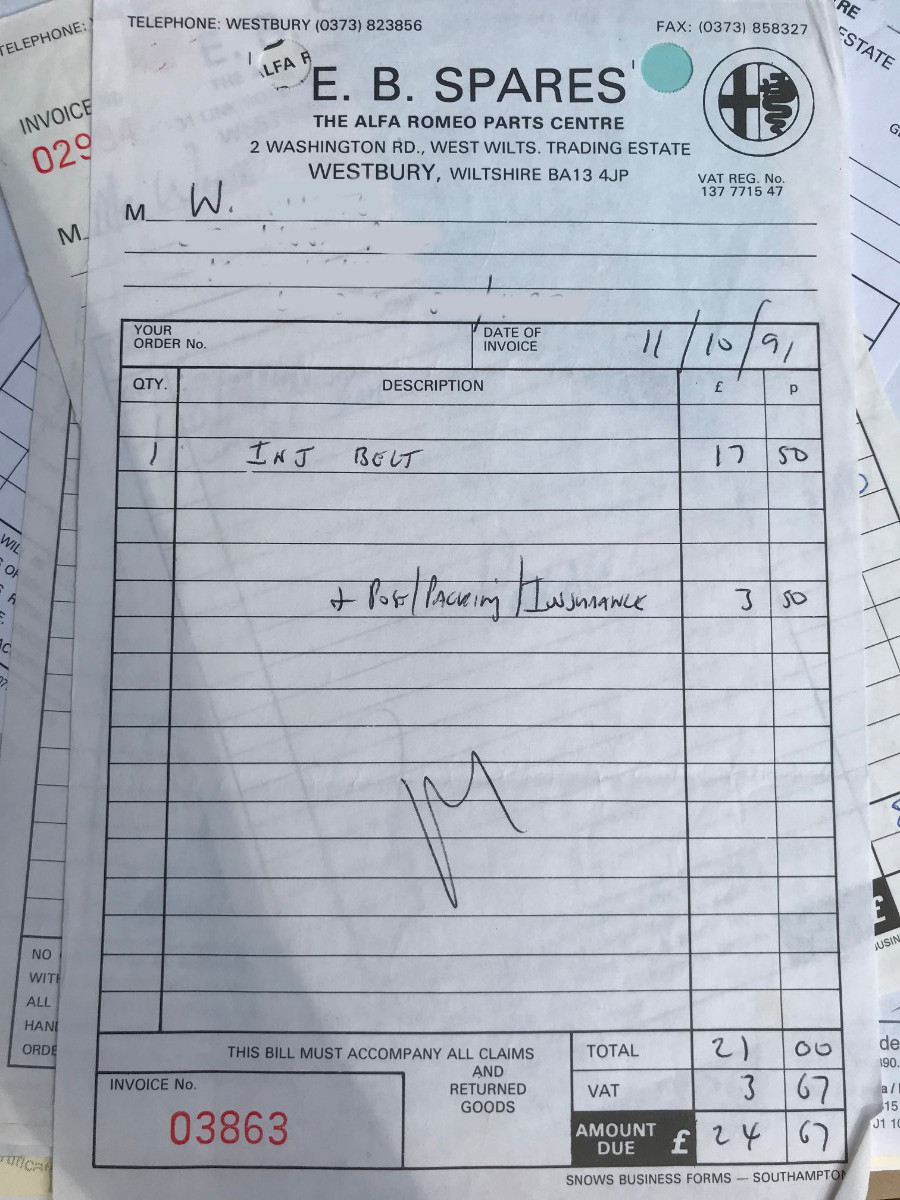 TELEPHONE: WESTBURY (0373) 823856
FAX: (0373) 858327
ALFA R
E. B. SPARES
THE ALFA ROMEO PARTS CENTRE
2 WASHINGTON RD., WEST WILTS. TRADING ESTATE
WESTBURY, WILTSHIRE BA13 4JP
VAT REG. No.
137 7715 47
M W.
YOUR
ORDER No.
DATE OF
INVOICE
11/10/91
QTY. DESCRIPTION £ p
1 INJ BELT 17 50
+ Post/Packing/Insurance 3 50
THIS BILL MUST ACCOMPANY ALL CLAIMS
AND
RETURNED
GOODS
TOTAL 21 00
VAT 3 67
AMOUNT
DUE £ 24 67
INVOICE No.
03863
SNOWS BUSINESS FORMS — SOUTHAMPTON
TELEPHONE:
INVOICE
M
NO
WITH
ALL
HAN
ORDE
RE
ESTATE
£